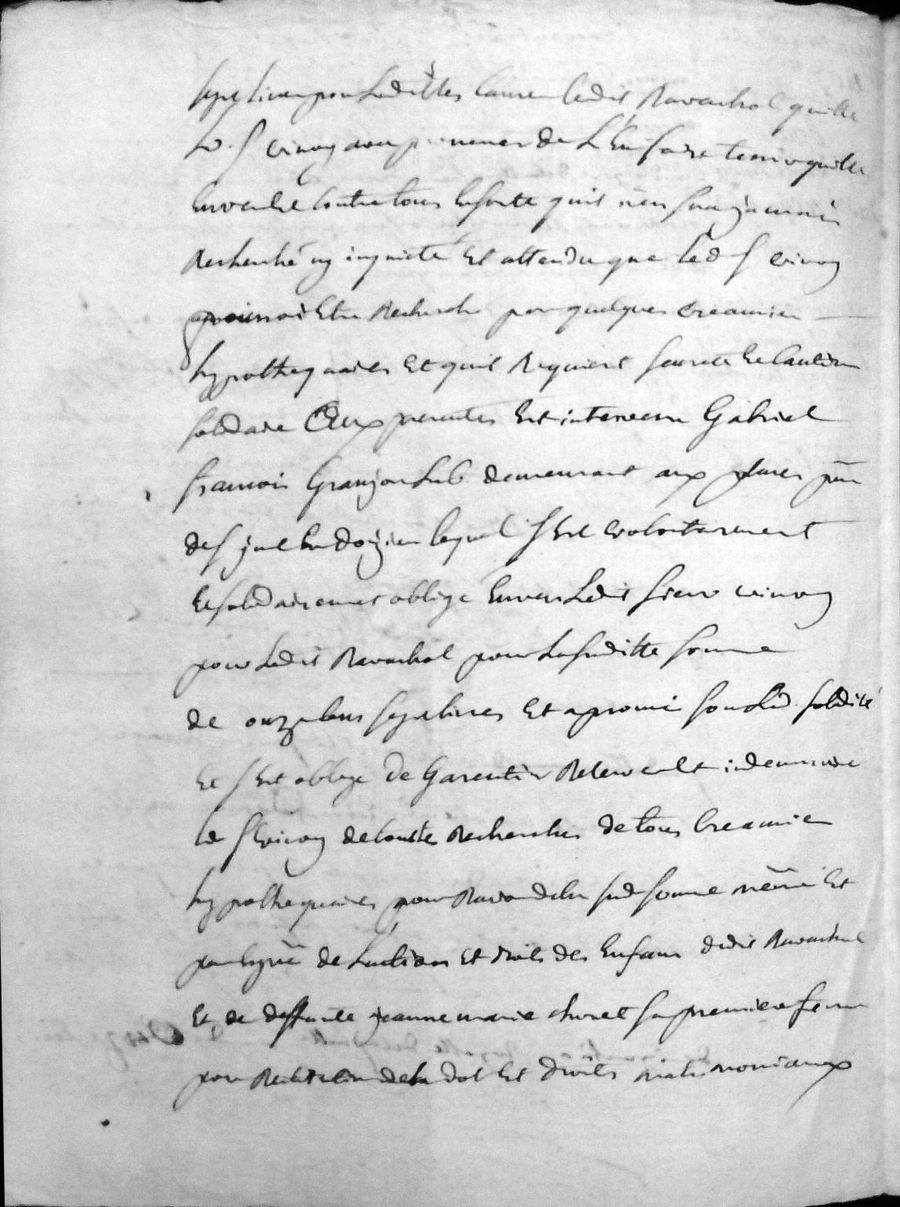 sept livres pour ledit les ledit Ravachol quitte
led. S vinoy avec promesse de l'en faire tenir quitte
Envers et contre tous Ensorte quil n'en sera jamais
Recherché ny inquieté Et attendu que led S vinoy
pouroit Etre Recherché par quelques creanciers
hypothequaires Et quil Requiert seureté Et Caution
solidaire Aux presentes Est intervenu Gabriel
francois Granjon lab demeurant aux places par
de S jullien lequel S Est volontairement
Et solidairement obligé Envers Ledit sieur vinoy
pour Ledit Ravachol pour La suditte somme
de onze cens sept livres Et a promis soub lad. solidité
Et s Est obligé De Garentir Relever Et indemniser
le S vinoy de toutte Recherches de tous Creancier
hypothequaires pour Raison de la sud somme même Et
par de L'action Et droits des Enfans dudit Ravachol
Et de deffunte jeanne marie choret sa premiere femme
pour Restitution de la dot Et droits matrimoniaux